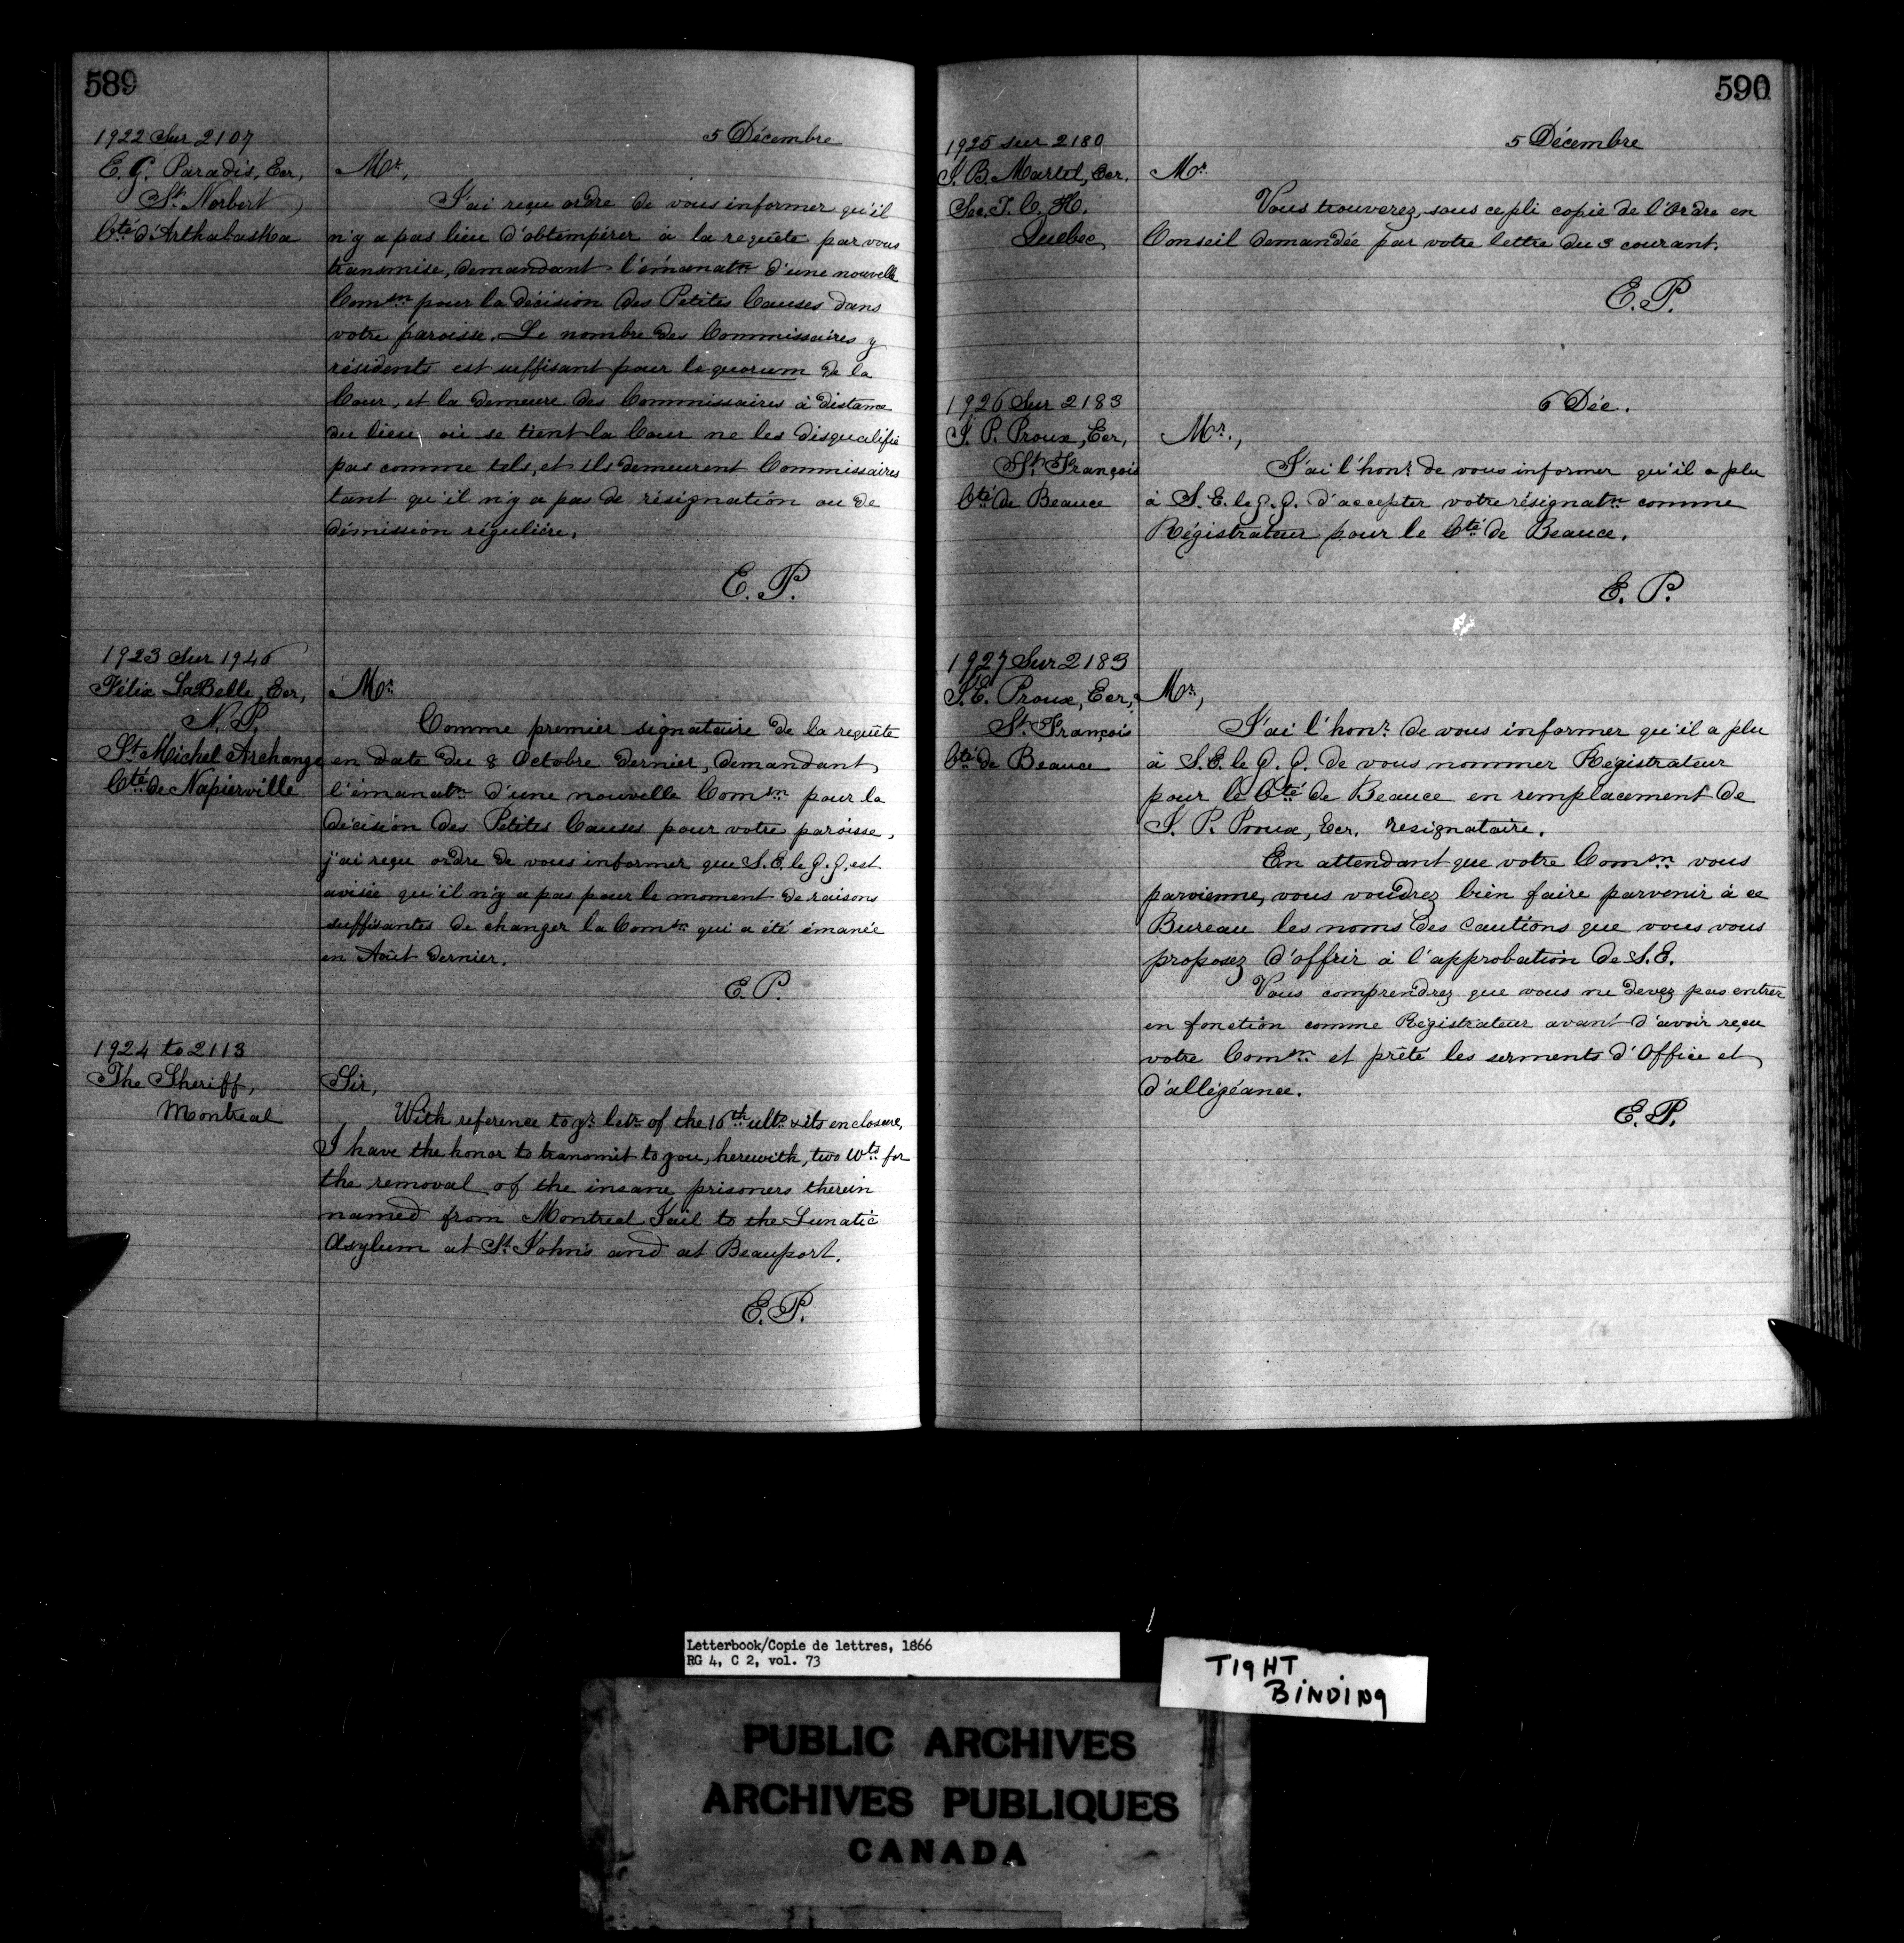 589
1922 Sur 2107
E. G. Paradis, Ecr,
St. Norbert
Cté d'Arthabaska
5 Décembre
Mr,
J'ai reçu ordre de vous informer qu'il
n'y a pas lieu d'obtempérer à la requête par vous
transmise, demandant l'émanatn d'une nouvelle
Comsn pour la décision des Petites Causes dans
votre paroisse. Le nombre des Commissaires y
résidents est suffisant pour le quorum de la
Cour, et la demeure des Commissaires à distance
du lieu où se tient la Cour ne les disqualifie
pas comme tels, et ils demeurent Commissaires
tant qu'il n'y a pas de résignation ou de
démission régulière.
E. P.
1923 Sur 1946
Félix LaBelle, Ecr,
N. P.
St Michel Archange
Cté de Napierville
Mr
Comme premier signataire de la requête
en date du 8 Octobre dernier, demandant
l'émanatn d'une nouvelle Comsn pour la
décision des Petites Causes pour votre paroisse,
j'ai reçu ordre de vous informer que S. E. le G. G. est
avisée qu'il n'y a pas pour le moment de raisons
suffisantes de changer la Comsn qui a été émanée
en Août dernier.
E. P.
1924 to 2113
The Sheriff,
Montreal
Sir,
With reference to yr letr of the 16th ulto & its enclosure,
I have the honor to transmit to you, herewith, two Wts for
the removal of the insane prisoners therein
named from Montreal Jail to the Lunatic
Asylum at St. John's and at Beauport.
E. P.
590
1925 sur 2180
J. B. Martel, Ecr.
Sec. T. C. H.
Quebec,
5 Décembre
Mr
Vous trouverez, sous ce pli copie de l'Ordre en
Conseil demandée par votre lettre du 3 courant.
E. P.
1926 Sur 2183
J. P. Proux, Ecr,
St. François
Cté de Beauce
6 Déc.
Mr.,
J'ai l'honr de vous informer qu'il a plu
à S. E. le G. G. d'accepter votre résignatn comme
Régistrateur pour le Cté de Beauce.
E. P.
1927 Sur 2183
J. E. Proux, Ecr,
St. François
Cté de Beauce
Mr,
J'ai l'honr de vous informer qu'il a plu
à S. E. le G. G. de vous nommer Registrateur
pour le Cté de Beauce en remplacement de
J. P. Proux, Ecr. resignataire.
En attendant que votre Comsn vous
parvienne, vous voudrez bien faire parvenir à ce
Bureau les noms des cautions que vous vous
proposez d'offrir à l'approbation de S. E.
Vous comprendrez que vous ne devez pas entrer
en fonction comme Régistrateur avant d'avoir reçu
votre Comsn et prêté les serments d'Office et
d'allégéance.
E. P.
Letterbook/Copie de lettres, 1866
RG 4, C 2, vol. 73
TIGHT
BINDING
PUBLIC ARCHIVES
ARCHIVES PUBLIQUES
CANADA